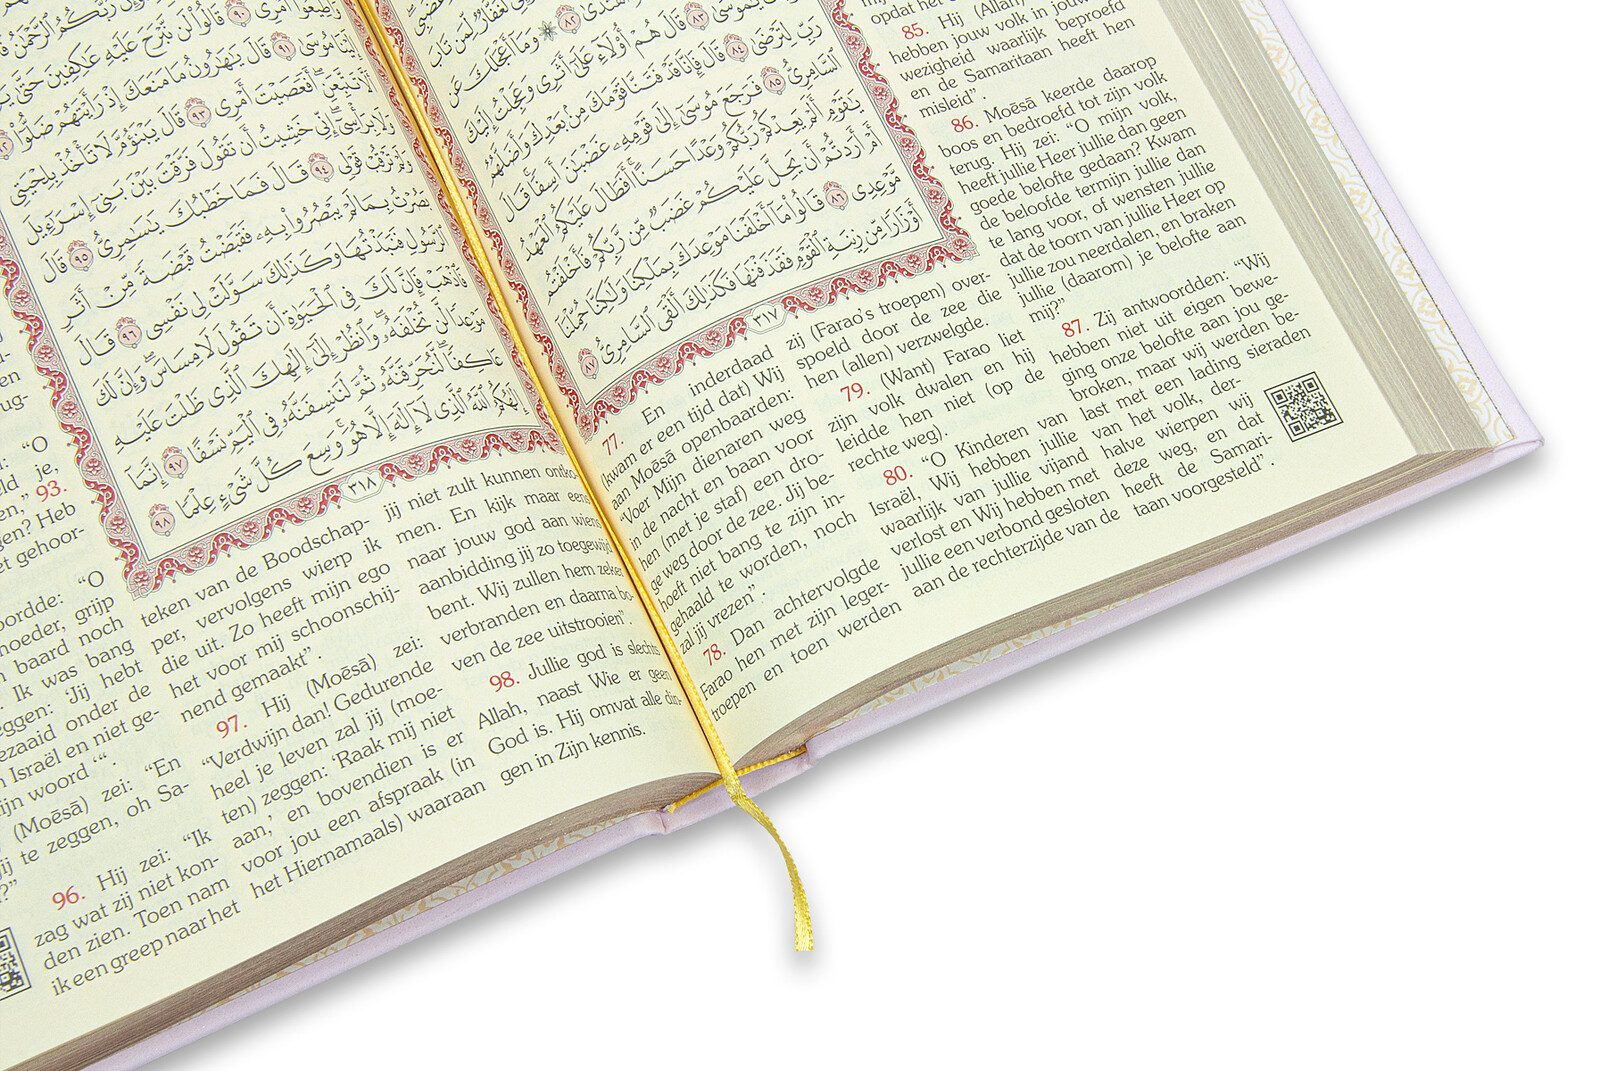 لَغَفَّارٌ لِّمَن تَابَ
ٱهْتَدَىٰ ٨٢ ۞ وَمَآ أَعْجَلَكَ عَن
يَٰمُوسَىٰ ٨٣ قَالَ هُمْ أُو۟لَآءِ عَلَىٰٓ أَثَرِى وَعَجِلْتُ إِلَيْكَ
رَبِّ لِتَرْضَىٰ ٨٤ قَالَ فَإِنَّا قَدْ فَتَنَّا قَوْمَكَ مِنۢ بَعْدِكَ وَأَضَلَّهُمُ
ٱلسَّامِرِىُّ ٨٥ فَرَجَعَ مُوسَىٰٓ إِلَىٰ قَوْمِهِۦ غَضْبَٰنَ أَسِفًا قَالَ
يَٰقَوْمِ أَلَمْ يَعِدْكُمْ رَبُّكُمْ وَعْدًا حَسَنًا أَفَطَالَ عَلَيْكُمُ ٱلْعَهْدُ
أَمْ أَرَدتُّمْ أَن يَحِلَّ عَلَيْكُمْ غَضَبٌ مِّن رَّبِّكُمْ فَأَخْلَفْتُم
مَّوْعِدِى ٨٦ قَالُوا۟ مَآ أَخْلَفْنَا مَوْعِدَكَ بِمَلْكِنَا وَلَٰكِنَّا حُمِّلْنَآ
أَوْزَارًا مِّن زِينَةِ ٱلْقَوْمِ فَقَذَفْنَٰهَا فَكَذَٰلِكَ أَلْقَى ٱلسَّامِرِىُّ ٨٧
٣١٧
77. En inderdaad
(kwam er een tijd dat) Wij
aan Moēsā openbaarden:
"Voer Mijn dienaren weg
in de nacht en baan voor
hen (met je staf) een dro-
ge weg door de zee. Jij be-
hoeft niet bang te zijn in-
gehaald te worden, noch
zal jij vrezen".
78. Dan achtervolgde
Farao hen met zijn leger-
troepen en toen werden
zij (Farao's troepen) over-
spoeld door de zee die
hen (allen) verzwelgde.
79. (Want) Farao liet
zijn volk dwalen en hij
leidde hen niet (op de
rechte weg).
80. "O Kinderen van
Israël, Wij hebben jullie
waarlijk van jullie vijand
verlost en Wij hebben met
jullie een verbond gesloten
aan de rechterzijde van de
opdat het
85. Hij (Allah)
hebben jouw volk in jouw
wezigheid waarlijk beproefd
en de Samaritaan heeft hen
misleid"
86. Moēsā keerde daarop
boos en bedroefd tot zijn volk
terug. Hij zei: "O mijn volk,
heeft jullie Heer jullie dan geen
goede belofte gedaan? Kwam
de beloofde termijn jullie dan
te lang voor, of wensten jullie
dat de toorn van jullie Heer op
jullie zou neerdalen, en braken
jullie (daarom) je belofte aan
mij?"
87. Zij antwoordden: "Wij
hebben niet uit eigen bewe-
ging onze belofte aan jou ge-
broken, maar wij werden be-
last met een lading sieraden
van het volk, der-
halve wierpen wij
deze weg, en dat
heeft de Samari-
taan voorgesteld".
قَالُوا۟ لَن نَّبْرَحَ عَلَيْهِ عَٰكِفِينَ حَتَّىٰ
مُوسَىٰ ٩١ قَالَ يَٰهَٰرُونُ مَا مَنَعَكَ إِذْ رَأَيْتَهُمْ ضَلُّوٓا۟ ٩٢
أَلَّا تَتَّبِعَنِ أَفَعَصَيْتَ أَمْرِى ٩٣ قَالَ يَبْنَؤُمَّ لَا تَأْخُذْ بِلِحْيَتِى
وَلَا بِرَأْسِىٓ إِنِّى خَشِيتُ أَن تَقُولَ فَرَّقْتَ بَيْنَ بَنِىٓ إِسْرَٰٓءِيلَ
وَلَمْ تَرْقُبْ قَوْلِى ٩٤ قَالَ فَمَا خَطْبُكَ يَٰسَٰمِرِىُّ ٩٥ قَالَ
بَصُرْتُ بِمَا لَمْ يَبْصُرُوا۟ بِهِۦ فَقَبَضْتُ قَبْضَةً مِّنْ أَثَرِ
ٱلرَّسُولِ فَنَبَذْتُهَا وَكَذَٰلِكَ سَوَّلَتْ لِى نَفْسِى ٩٦ قَالَ
فَٱذْهَبْ فَإِنَّ لَكَ فِى ٱلْحَيَوٰةِ أَن تَقُولَ لَا مِسَاسَ وَإِنَّ لَكَ
مَوْعِدًا لَّن تُخْلَفَهُۥ وَٱنظُرْ إِلَىٰٓ إِلَٰهِكَ ٱلَّذِى ظَلْتَ عَلَيْهِ
عَاكِفًا لَّنُحَرِّقَنَّهُۥ ثُمَّ لَنَنسِفَنَّهُۥ فِى ٱلْيَمِّ نَسْفًا ٩٧ إِنَّمَآ
إِلَٰهُكُمُ ٱللَّهُ ٱلَّذِى لَآ إِلَٰهَ إِلَّا هُوَ وَسِعَ كُلَّ شَىْءٍ عِلْمًا ٩٨
٣١٨
"O
je,
93.
Heb
gehoor-
"O
grijp
baard noch
Ik was bang
zeggen: 'Jij hebt
onder de
Israël en niet ge-
woord '".
(Moēsā) zei: "En
te zeggen, oh Sa-
96. Hij zei: "Ik
zag wat zij niet kon-
den zien. Toen nam
ik een greep naar het
teken van de Boodschap-
per, vervolgens wierp ik
die uit. Zo heeft mijn ego
het voor mij schoonschij-
nend gemaakt".
97. Hij (Moēsā) zei:
"Verdwijn dan! Gedurende
heel je leven zal jij (moe-
ten) zeggen: 'Raak mij niet
aan,' en bovendien is er
voor jou een afspraak (in
het Hiernamaals) waaraan
jij niet zult kunnen
men. En kijk maar eens
naar jouw god aan wiens
aanbidding jij zo toegewijd
bent. Wij zullen hem zeker
verbranden en daarna bo-
ven de zee uitstrooien".
98. Jullie god is slechts
Allah, naast Wie er geen
God is. Hij omvat alle din-
gen in Zijn kennis.